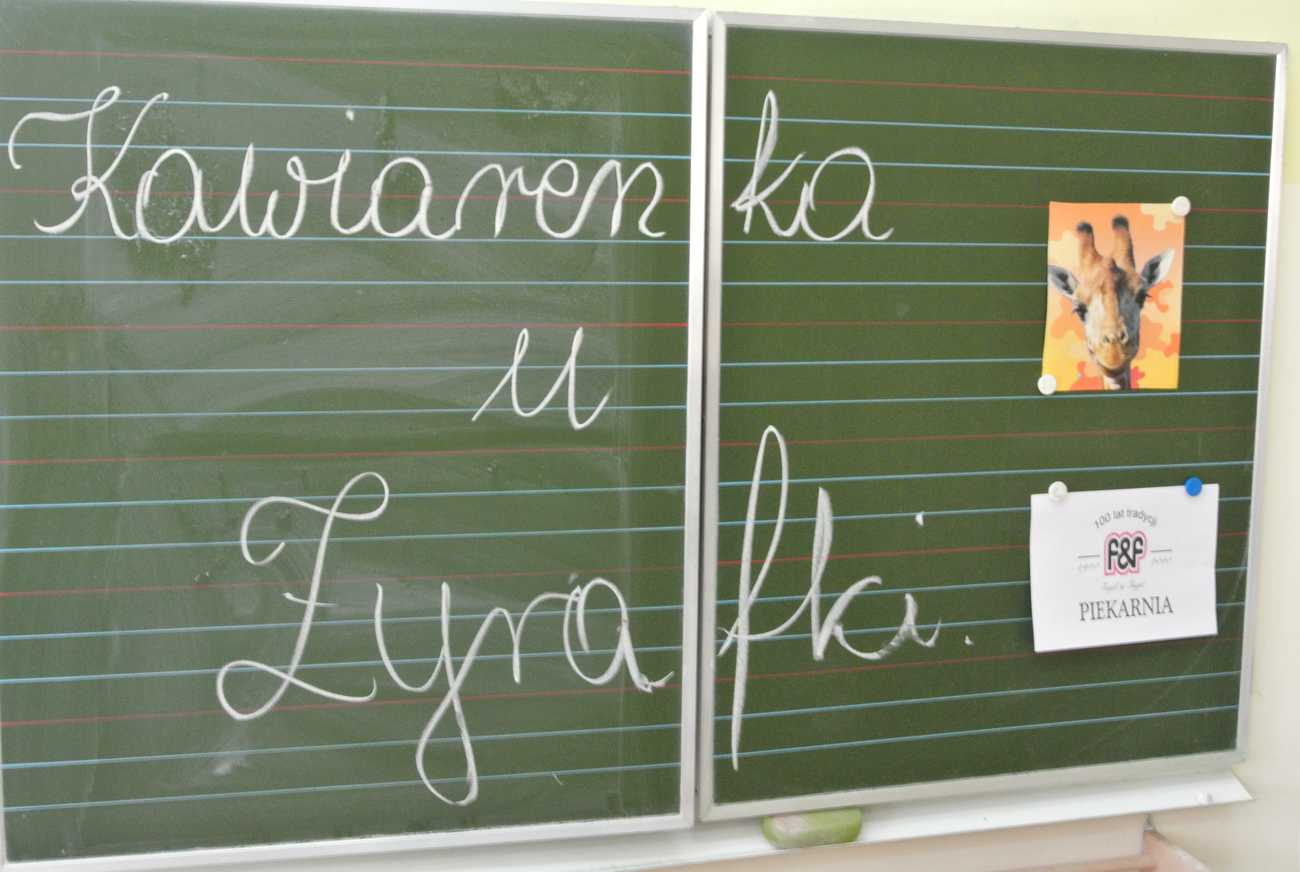 Kawiarenka
u
Żyrafki.
100 lat tradycji
F&F
PIEKARNIA